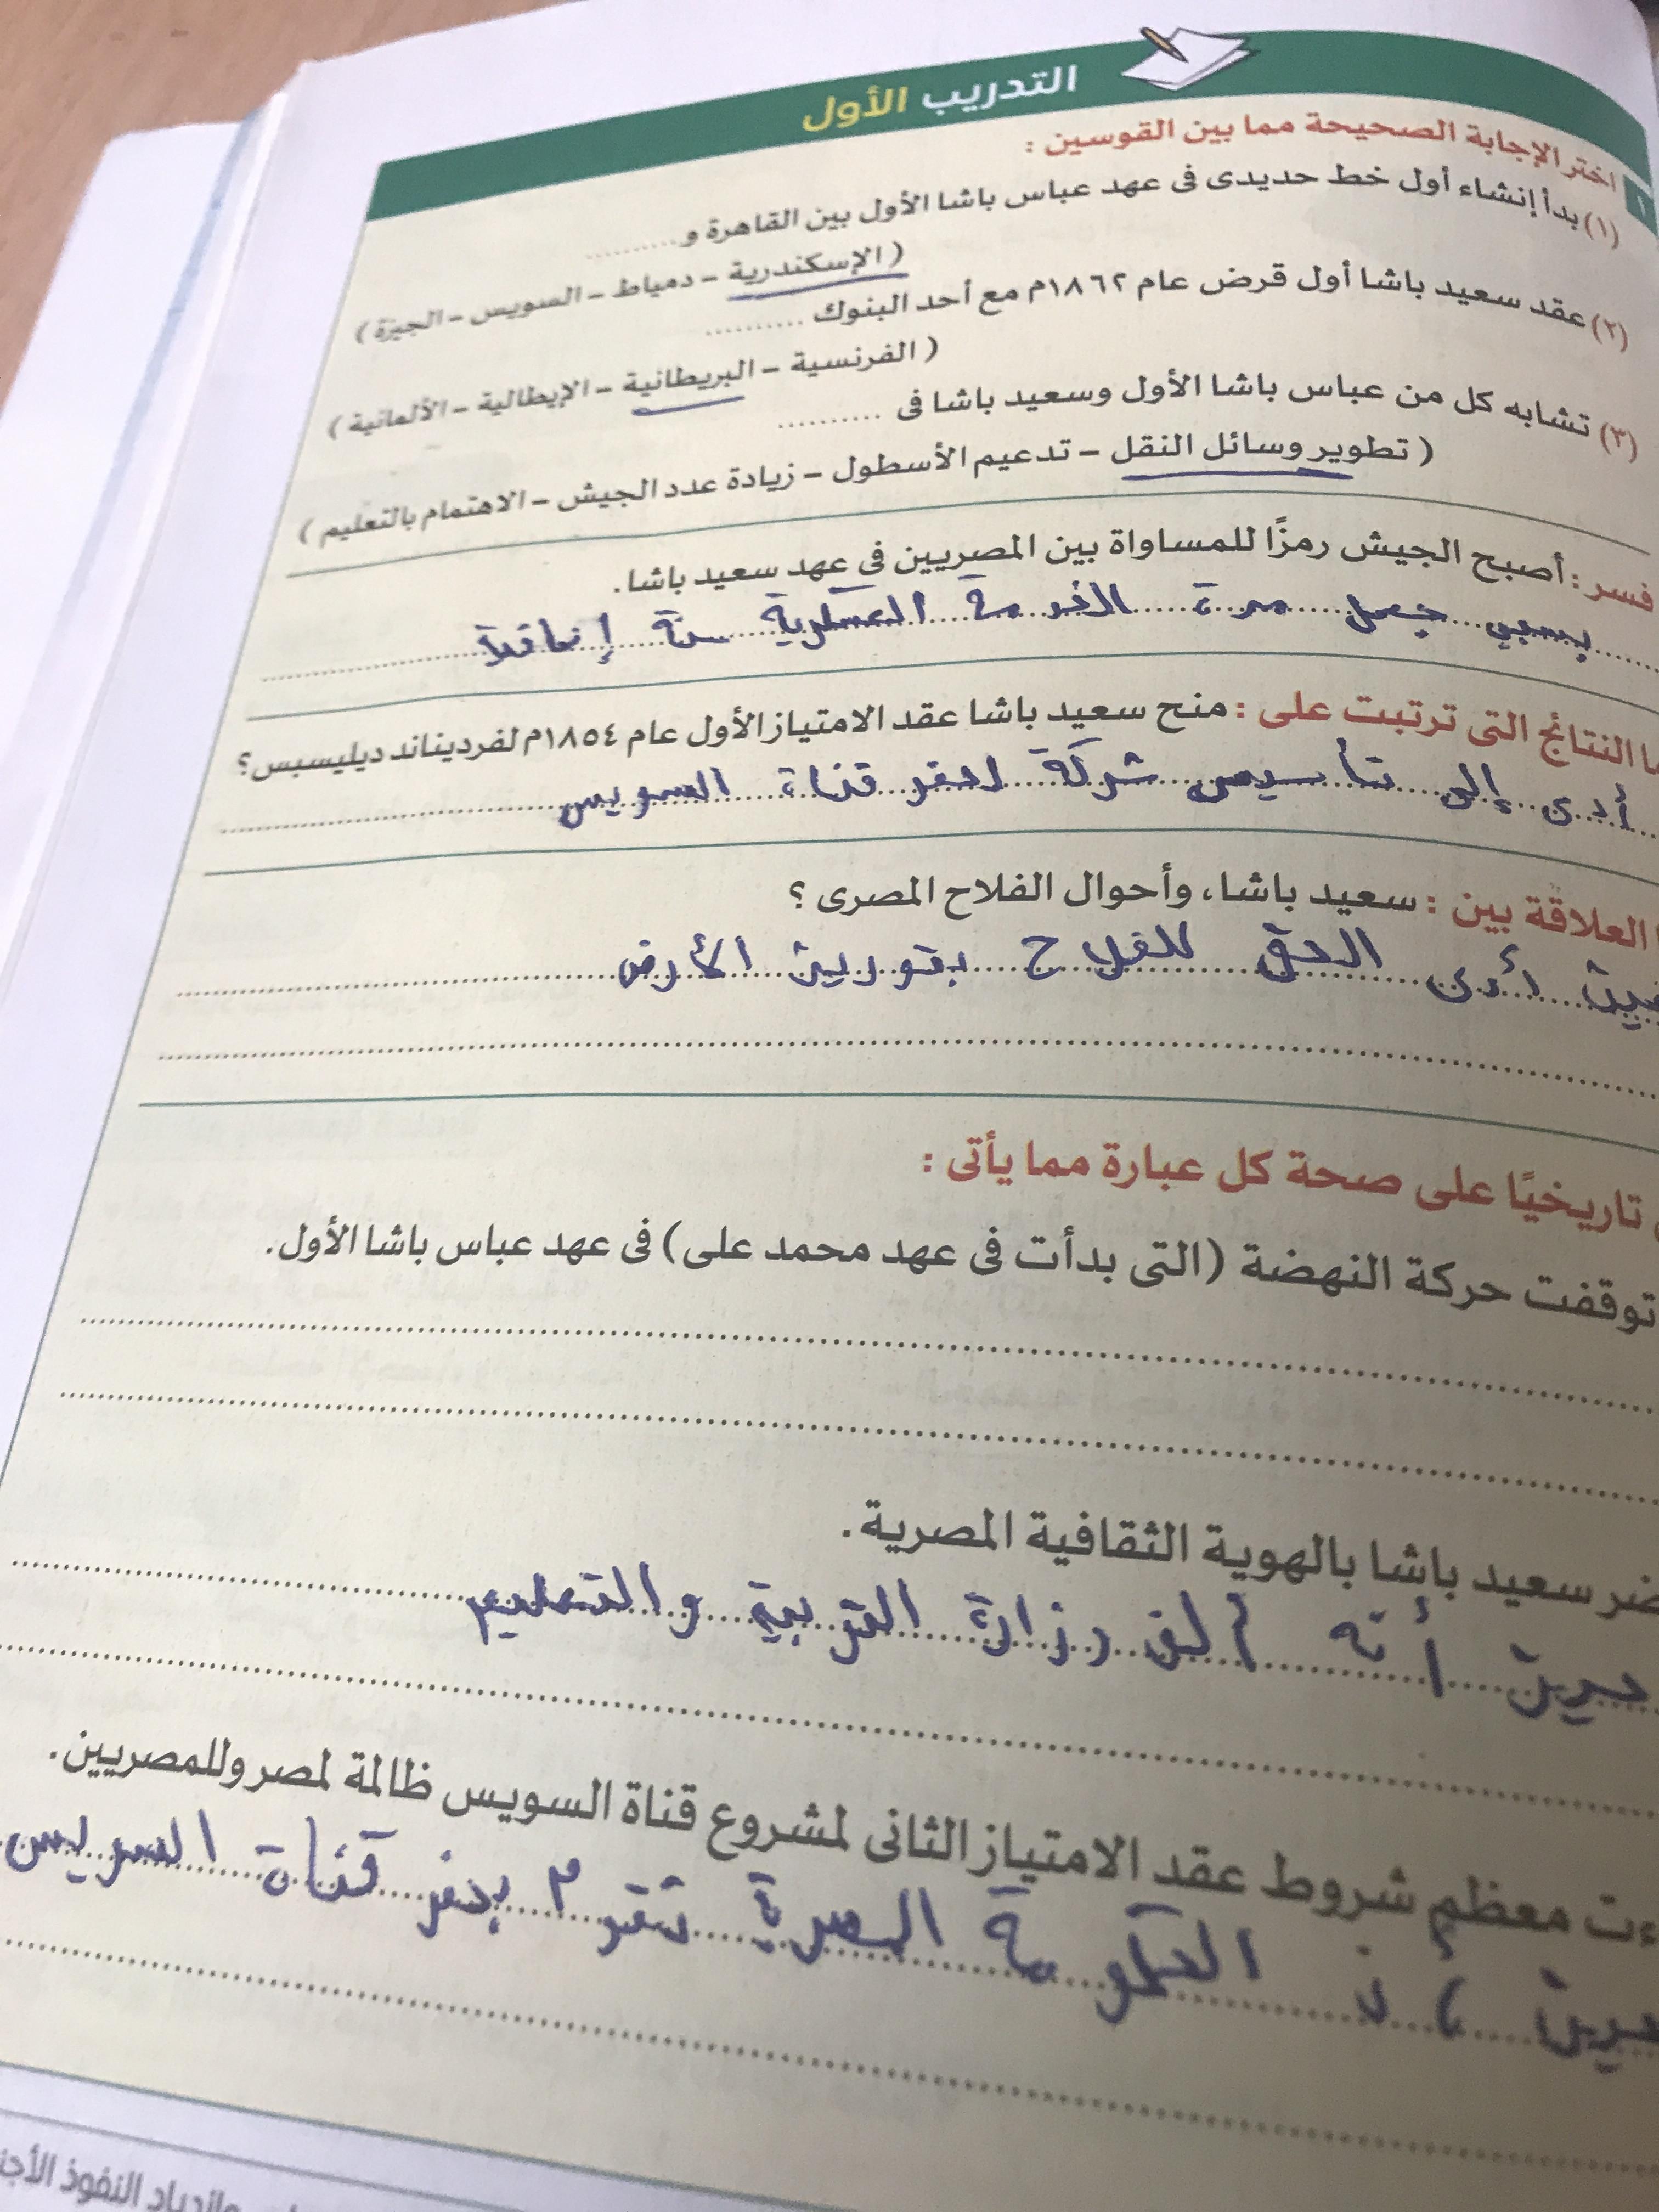 التدريب الأول
١ اختر الإجابة الصحيحة مما بين القوسين :
(١) بدأ إنشاء أول خط حديدى فى عهد عباس باشا الأول بين القاهرة و ..........
( الإسكندرية – دمياط – السويس – الجيزة )
(٢) عقد سعيد باشا أول قرض عام ١٨٦٢م مع أحد البنوك ..........
( الفرنسية – البريطانية – الإيطالية – الألمانية )
(٣) تشابه كل من عباس باشا الأول وسعيد باشا فى ..........
( تطوير وسائل النقل – تدعيم الأسطول – زيادة عدد الجيش – الاهتمام بالتعليم )
فسر : أصبح الجيش رمزًا للمساواة بين المصريين فى عهد سعيد باشا.
بسبب جعل مدة الخدمة العسكرية سنة إنهاقدة
ما النتائج التى ترتبت على : منح سعيد باشا عقد الامتياز الأول عام ١٨٥٤م لفرديناند ديليسبس؟
أدى إلى تأسيس شركة لحفر قناة السويس
العلاقة بين : سعيد باشا، وأحوال الفلاح المصرى ؟
أدى الحق للفلاح بتوريث الأرض
تاريخيًا على صحة كل عبارة مما يأتى :
توقفت حركة النهضة (التى بدأت فى عهد محمد على) فى عهد عباس باشا الأول.
سعيد باشا بالهوية الثقافية المصرية.
أنه ألغى وزارة التربية والتعليم
معظم شروط عقد الامتياز الثانى لمشروع قناة السويس ظالمة لمصر وللمصريين.
الحكومة المصرية تقوم بحفر قناة السويس
وازدياد النفوذ